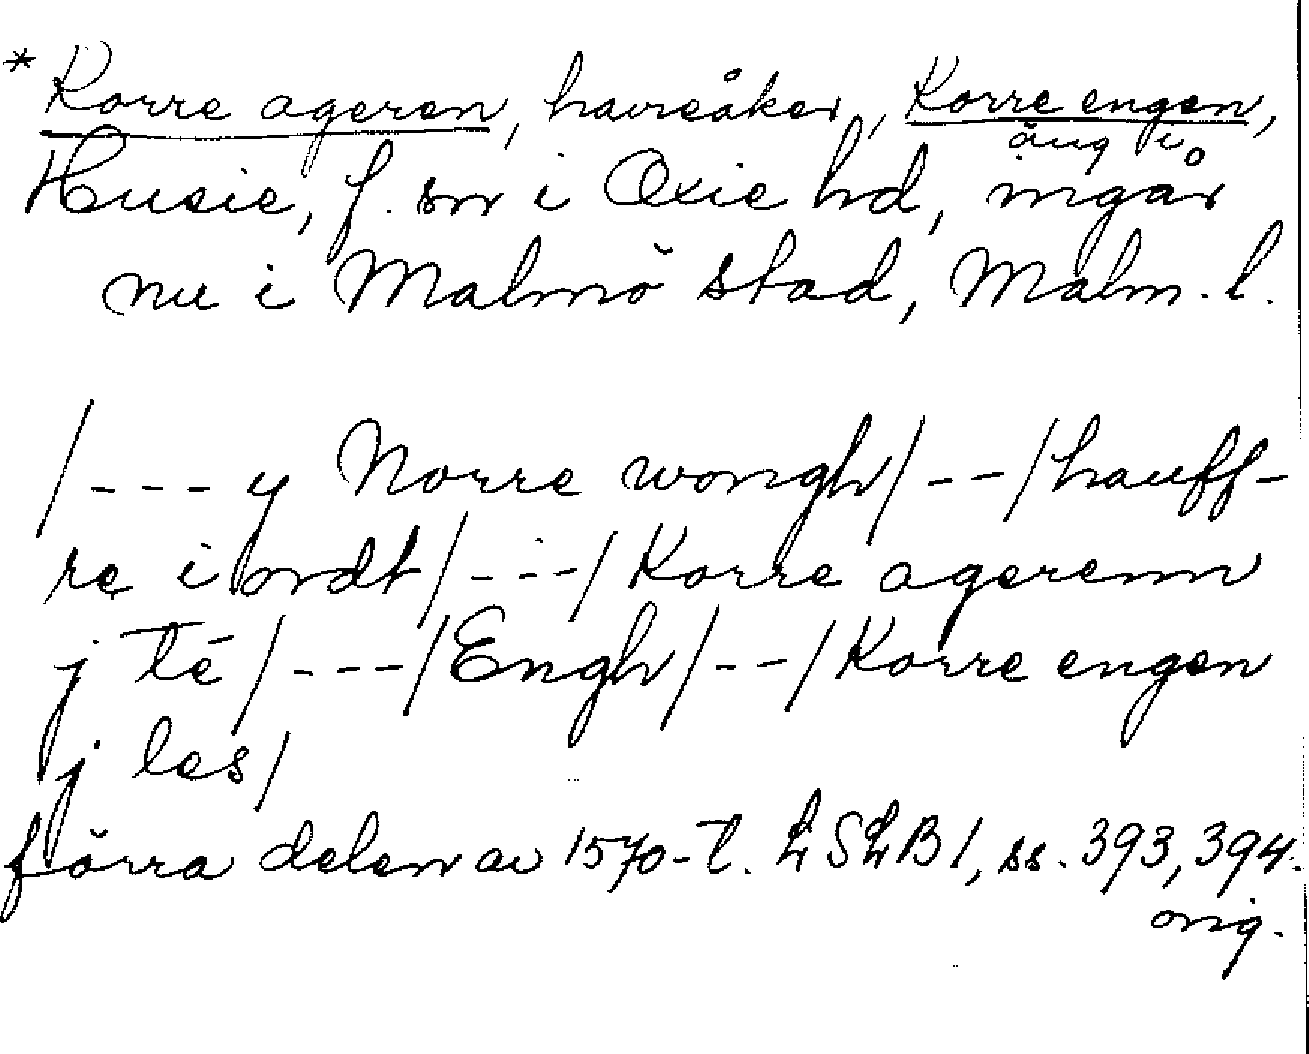 * Korre ageren, havreåker, Korre engen,
äng i
Husie, f. sn i Oxie hd, ingår
nu i Malmö stad, Malm. l.
/--- y Norre wongh/--/hauff-
re iordt/---/Korre agerenn
j té/---/Engh/--/Korre engen
j les/
förra delen av 1570-t. LSLB 1, ss. 393, 394.
orig.